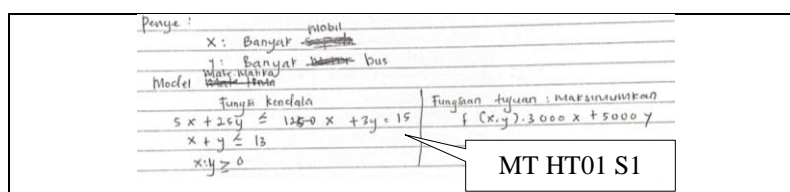 Penye :
x : Banyak mobil
y : Banyak bus
Model Matematika
Fungsi kendala
5x + 25y ≤ 125 x + 3y = 15
x + y ≤ 13
x:y ≥ 0
Fungsian tujuan : maksimumkan
f (x,y) . 3000 x + 5000 y
MT HT01 S1